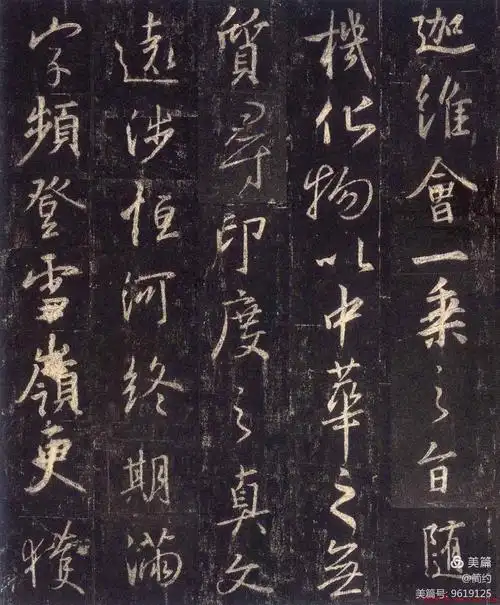 迦維會一乘之旨隨
機化物以中華之無
質尋印度之真文
遠涉恒河終期滿
字頻登雪嶺更獲
美篇
@简约
美篇号: 9619125